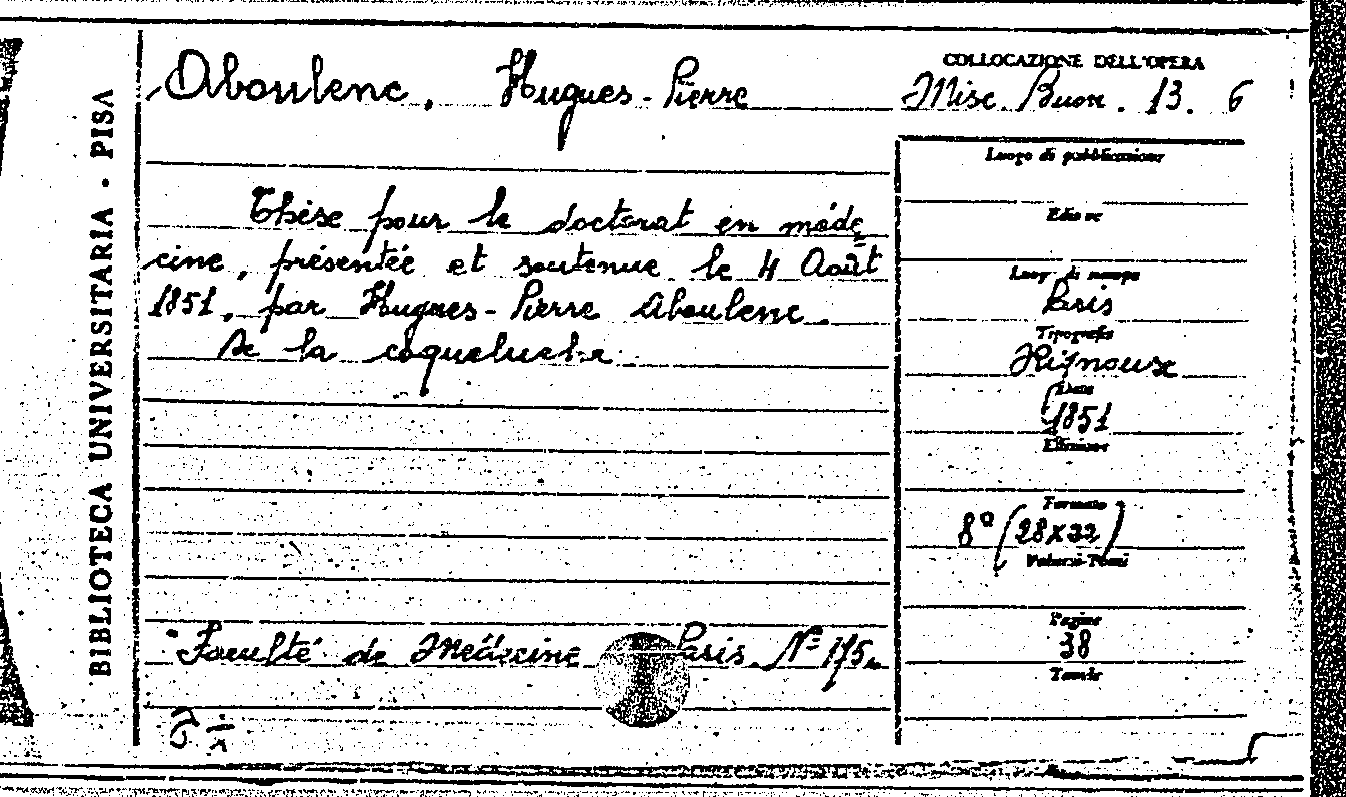 BIBLIOTECA UNIVERSITARIA - PISA
Aboulenc, Hugues-Pierre
COLLOCAZIONE DELL'OPERA
Misc. Buon. 13. 6
Thèse pour le doctorat en méde
cine, présentée et soutenue le 4 Août
1851, par Hugues-Pierre Aboulenc.
De la coqueluche
Faculté de Médecine Paris. Nº 175
Luogo di pubblicazione
Editore
Luogo di stampa
Paris
Tipografo
Rignoux
Data
1851
Edizione
Formato
8º (28x22)
Volumi-Tomi
Pagine
38
Tavole